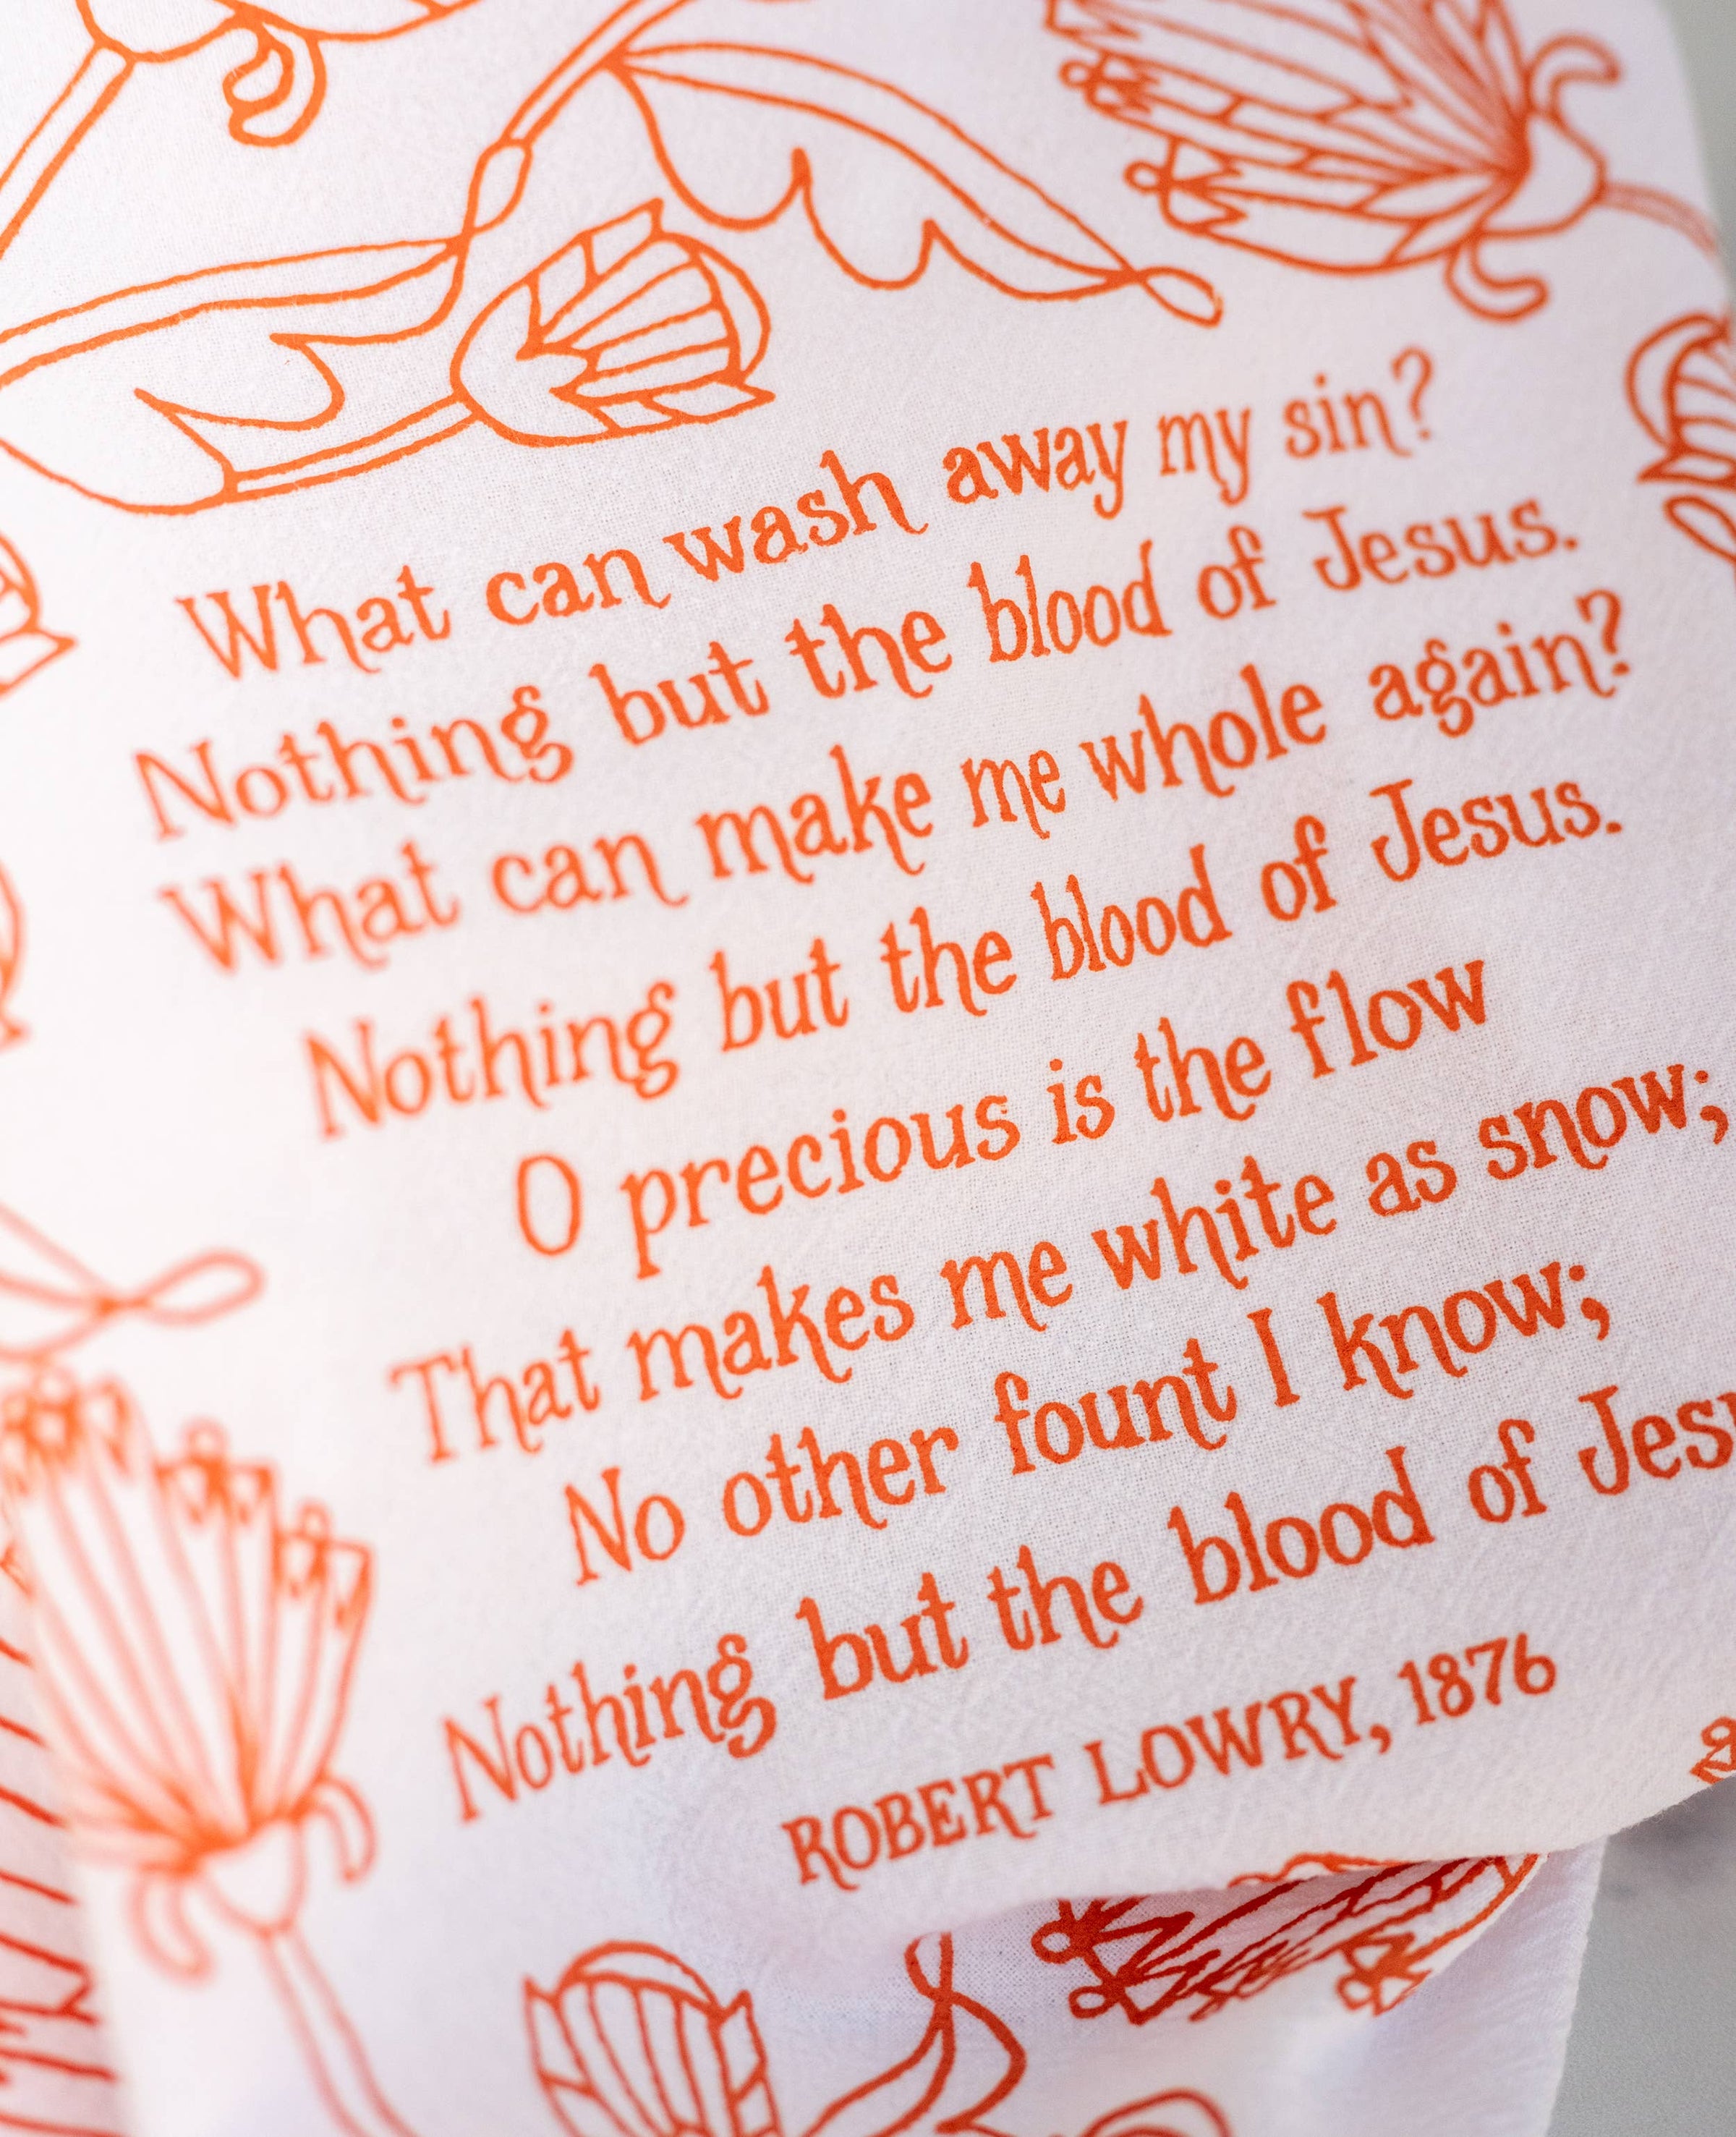 What can wash away my sin?
Nothing but the blood of Jesus.
What can make me whole again?
Nothing but the blood of Jesus.
O precious is the flow
That makes me white as snow;
No other fount I know;
Nothing but the blood of Jesu
ROBERT LOWRY, 1876